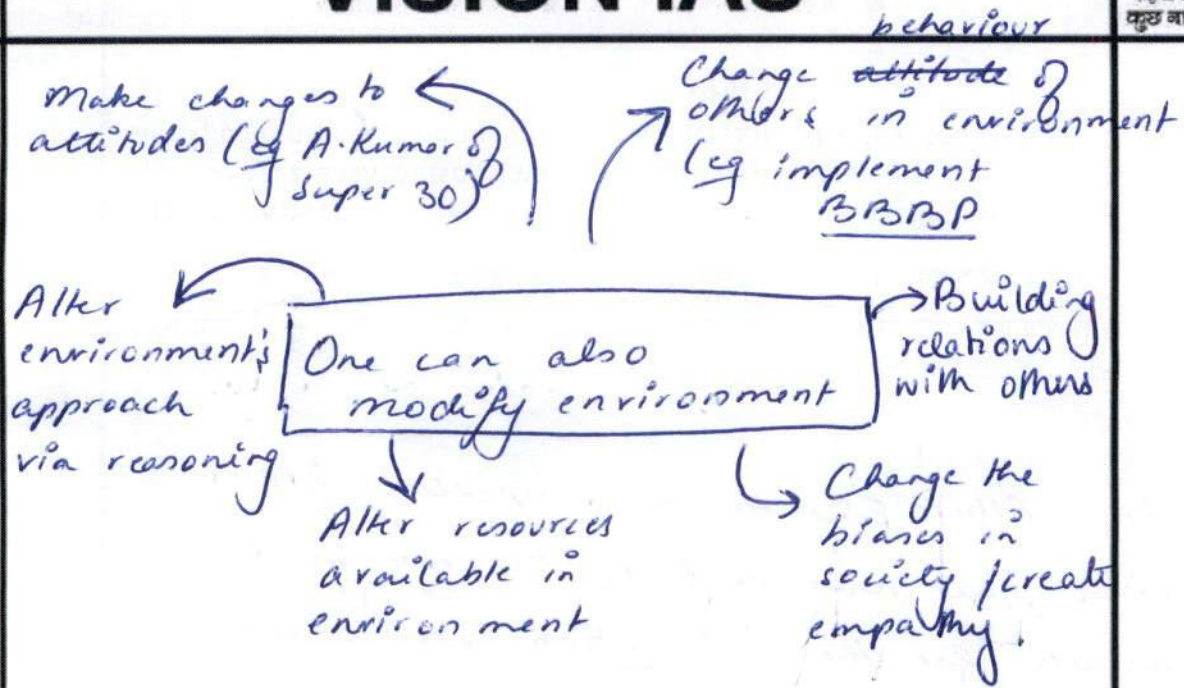 VISION IAS
कुछ ना
Make changes to
attitudes (eg A. Kumar of
Super 30)
behaviour
Change attitude of
others in environment
(eg implement
BBBP
Alter
environment's
approach
via reasoning
One can also
modify environment
Building
relations
with others
Alter resources
available in
environment
Change the
biases in
society / create
empathy.